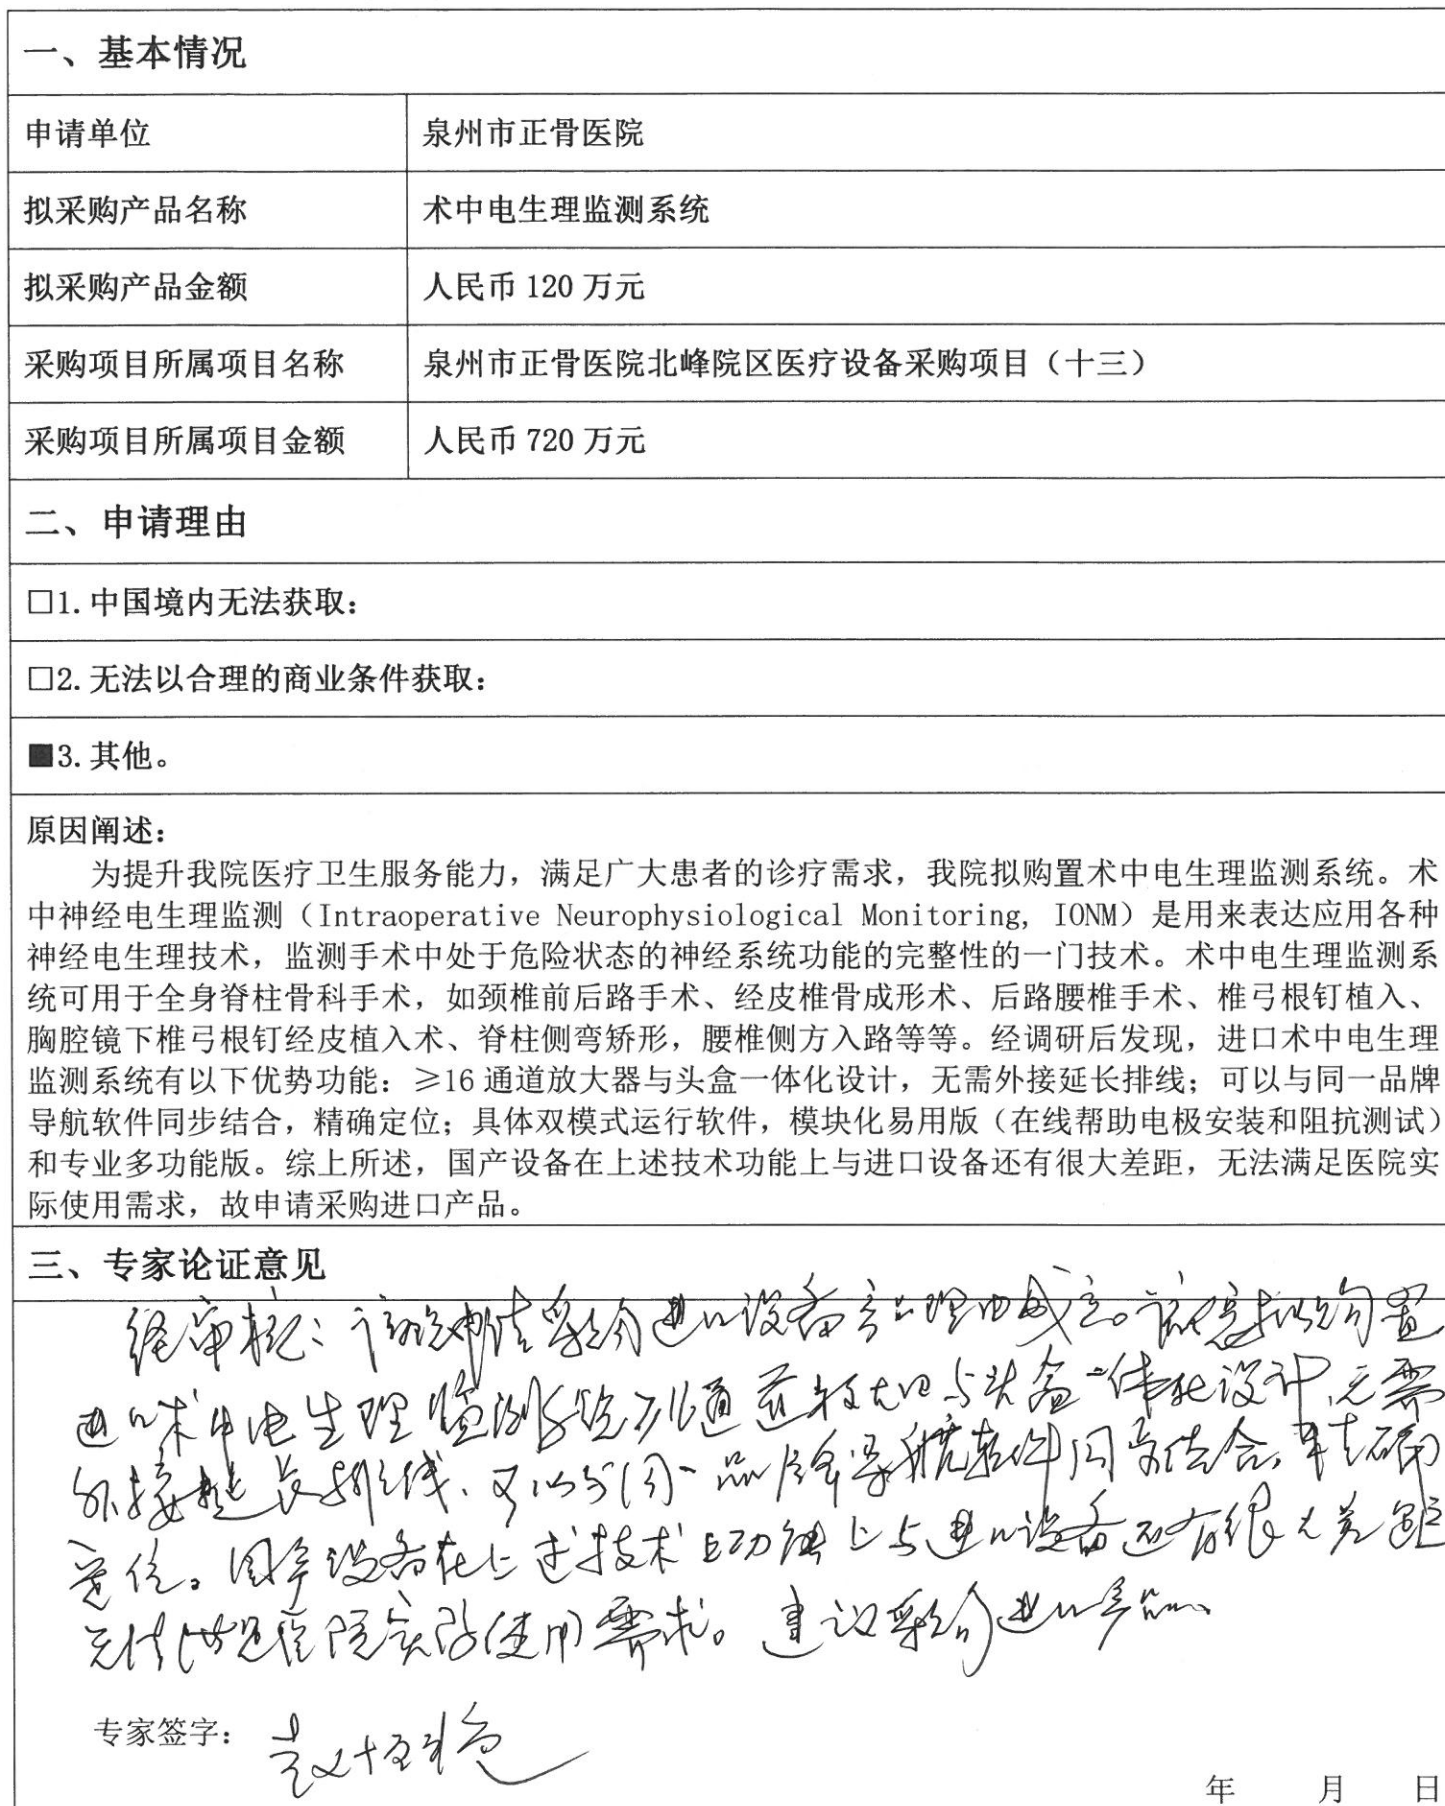 一、基本情况
申请单位 泉州市正骨医院
拟采购产品名称 术中电生理监测系统
拟采购产品金额 人民币 120 万元
采购项目所属项目名称 泉州市正骨医院北峰院区医疗设备采购项目（十三）
采购项目所属项目金额 人民币 720 万元
二、申请理由
□1. 中国境内无法获取：
□2. 无法以合理的商业条件获取：
■3. 其他。
原因阐述：
为提升我院医疗卫生服务能力，满足广大患者的诊疗需求，我院拟购置术中电生理监测系统。术
中神经电生理监测（Intraoperative Neurophysiological Monitoring, IONM）是用来表达应用各种
神经电生理技术，监测手术中处于危险状态的神经系统功能的完整性的一门技术。术中电生理监测系
统可用于全身脊柱骨科手术，如颈椎前后路手术、经皮椎骨成形术、后路腰椎手术、椎弓根钉植入、
胸腔镜下椎弓根钉经皮植入术、脊柱侧弯矫形，腰椎侧方入路等等。经调研后发现，进口术中电生理
监测系统有以下优势功能：≥16 通道放大器与头盒一体化设计，无需外接延长排线；可以与同一品牌
导航软件同步结合，精确定位；具体双模式运行软件，模块化易用版（在线帮助电极安装和阻抗测试）
和专业多功能版。综上所述，国产设备在上述技术功能上与进口设备还有很大差距，无法满足医院实
际使用需求，故申请采购进口产品。
三、专家论证意见
经审核：该院申请采购进口设备产品理由成立。该院拟购置
进口术中电生理监测系统 通道放大器与头盒一体化设计，无需
外接延长排线、可以与同一品牌导航软件同步结合，精确
定位。国产设备在上述技术 功能上与进口设备还有很大差距
无法满足医院实际使用需求。建议采购进口产品。
专家签字：
年 月 日